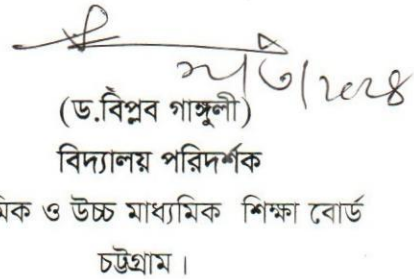 (ড.বিপ্লব গাঙ্গুলী)
বিদ্যালয় পরিদর্শক
মিক ও উচ্চ মাধ্যমিক শিক্ষা বোর্ড
চট্টগ্রাম।